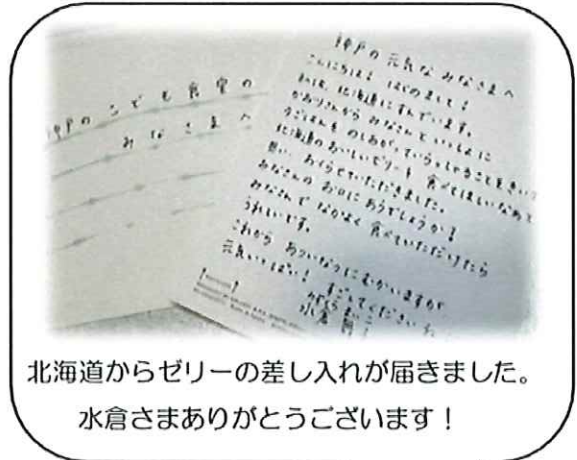 神戸のこども食堂の
みなさまへ
神戸の元気なみなさまへ
こんにちは! はじめまして!
私は、北海道にすんでいます。
かおりさんから みなさんといっしょに
うごはんを めしあがっていらっしゃることをきいて
北海道のおいしいゼリーを 食べてほしいなぁと
思い、おくらせていただきました。
みなさんの お口にあうでしょうか?
みなさんで なかよく 食べていただけたら
うれしいです。
これから あついなつにむかいますが
元気いっぱい! すごしてくださいね
水倉
北海道からゼリーの差し入れが届きました。
水倉さまありがとうございます!